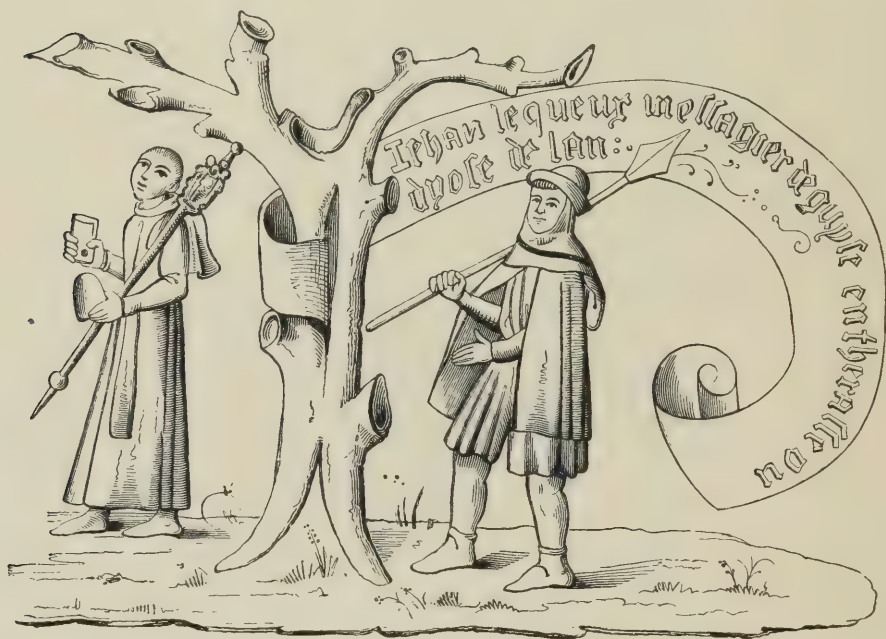 Iehan le queux messagier de guyse en therasse ou
dyose de lan: